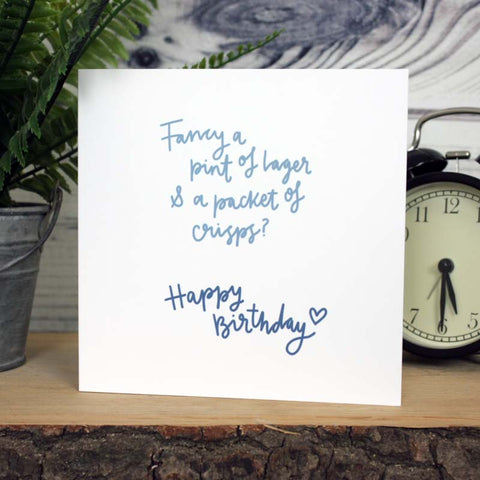 Fancy a
pint of lager
& a packet of
crisps?
Happy
Birthday
11 12
10
9
8
7 6 5